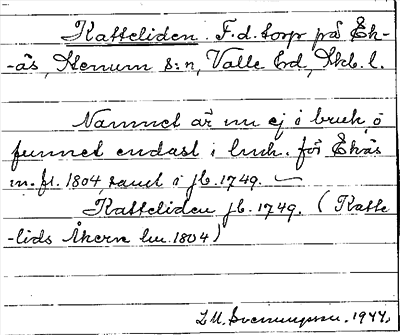 Katteliden. F.d. torp på Ek-
-ås, Stenum s:n, Valle hd, Skb. l.
Namnet är nu ej i bruk, o
funnet endast i huh. för Ekås
m. fl. 1804, samt i jb. 1749.
Katteliden jb. 1749. (Katte
-lids Åkern hu. 1804)
L.M. Svenungsson. 1944.